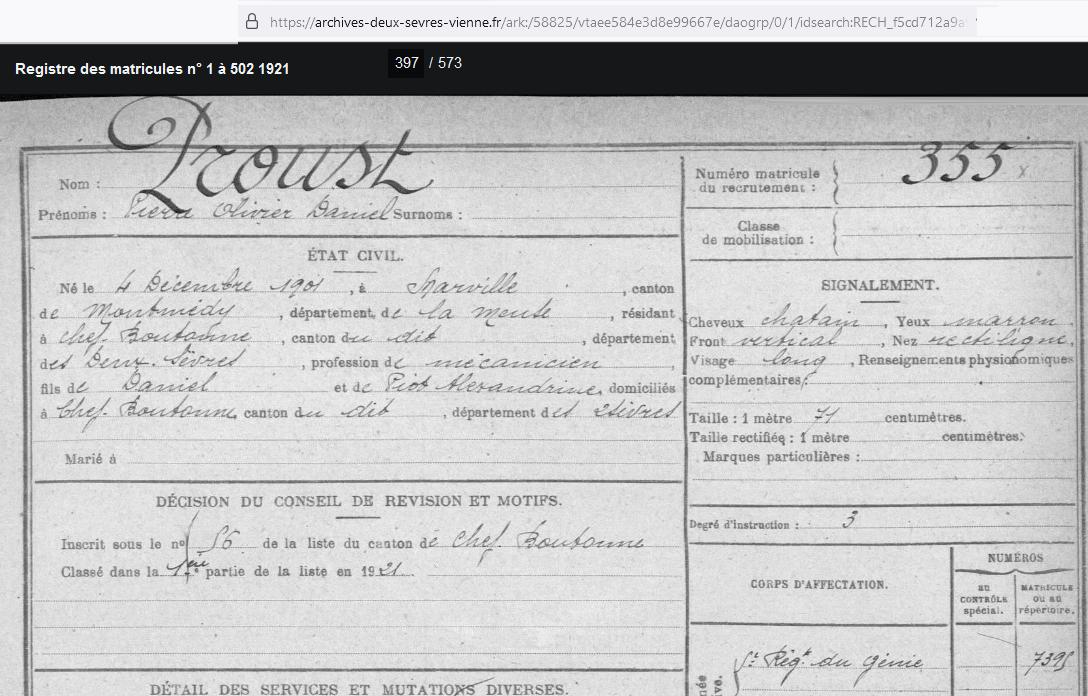 https://archives-deux-sevres-vienne.fr/ark:/58825/vtaee584e3d8e99667e/daogrp/0/1/idsearch:RECH_f5cd712a9a
Registre des matricules n° 1 à 502 1921
397 / 573
Proust
Nom :
Prénoms : Pierre Olivier Daniel Surnoms :
Numéro matricule du recrutement : 355 x
Classe de mobilisation :
ÉTAT CIVIL.
Né le 4 Décembre 1901, à Marville, canton
de Montmédy, département de la meuse, résidant
à chef Boutonne, canton du dit, département
des Deux-Sèvres, profession de mécanicien
fils de Daniel et de Piot Alexandrine, domiciliés
à Chef-Boutonne, canton du dit, département des 2 Sèvres
Marié à
SIGNALEMENT.
Cheveux chatain, Yeux marron.
Front vertical, Nez rectiligne,
Visage long, Renseignements physionomiques
complémentaires :
Taille : 1 mètre 71 centimètres.
Taille rectifiée : 1 mètre centimètres.
Marques particulières :
Degré d'instruction : 3
DÉCISION DU CONSEIL DE REVISION ET MOTIFS.
Inscrit sous le n° 56 de la liste du canton de Chef. Boutonne
Classé dans la 1ère partie de la liste en 1921.
CORPS D'AFFECTATION.
NUMÉROS
au CONTRÔLE spécial.
MATRICULE ou au répertoire.
Régt du génie
7395
DÉTAIL DES SERVICES ET MUTATIONS DIVERSES.